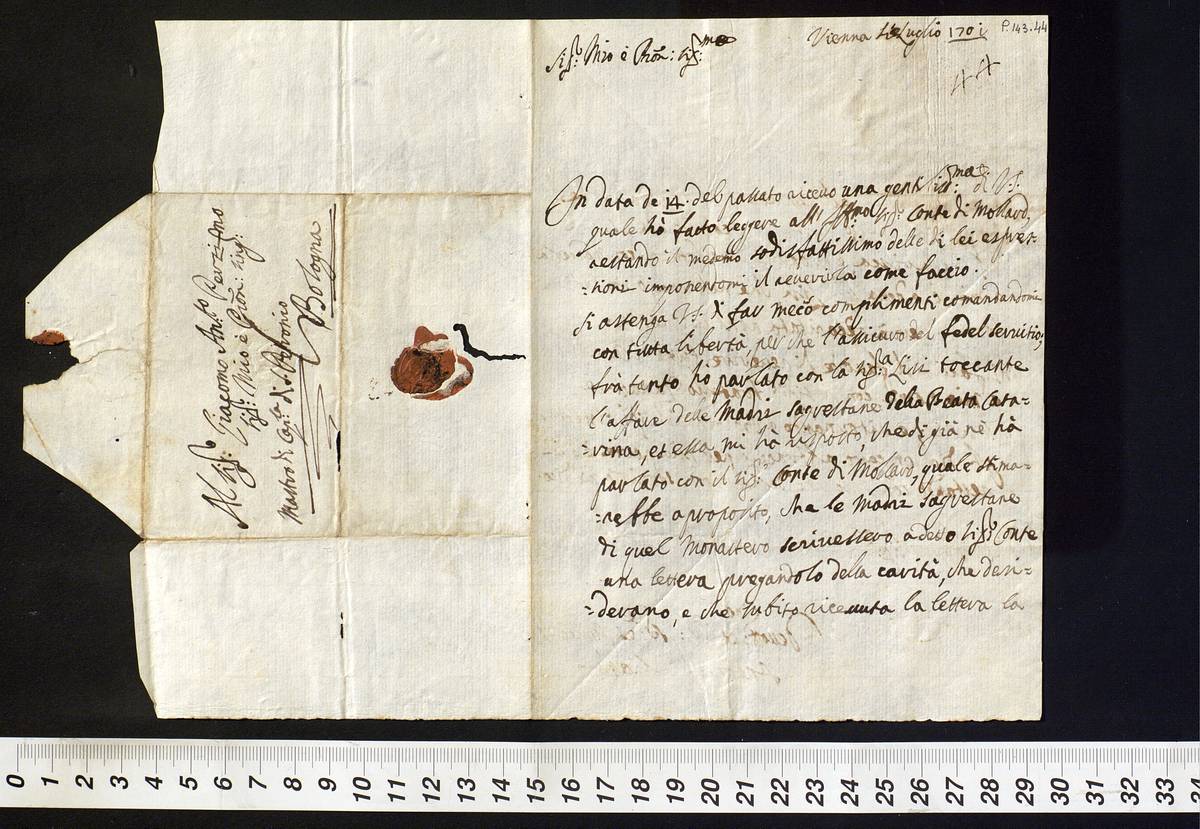 Vienna Luglio 1701
P.143.44
44
Sig.r Mio è Pron: sig:mo
In data de 14. del passato ricevo una gentiliss:ma di VS.
quale hò facto leggere all' Illmo sig.r Conte di Mollard,
restando il medemo sodisfattissimo delle di lei espres-
=sioni imponendomi il reverirla come faccio.
Si astenga VS. di far mecō complimenti comandandomi
con tutta libertà, per che l'assicuro del fedel servitio;
frà tanto hò parlato con la sig:a Lisi toccante
l'affare delle Madri sagrestane della Beata Cata-
=rina, et essa mi hà risposto, che di già nè hà
parlato con il sig:r Conte di Mollard, quale stima-
=rebbe a proposito, che le Madri sagrestane
di quel Monastero scrivessero a detto sig:r Conte
una lettera pregandolo della carità, che desi-
=derano, e che subito ricevuta la lettera la
Al sig:r Giacomo Ant:o Perti Pmo
sig:r Mio è Pron sing:
Mastro di Cap:la di S. Petronio
Bologna
0 1 2 3 4 5 6 7 8 9 10 11 12 13 14 15 16 17 18 19 20 21 22 23 24 25 26 27 28 29 30 31 32 33